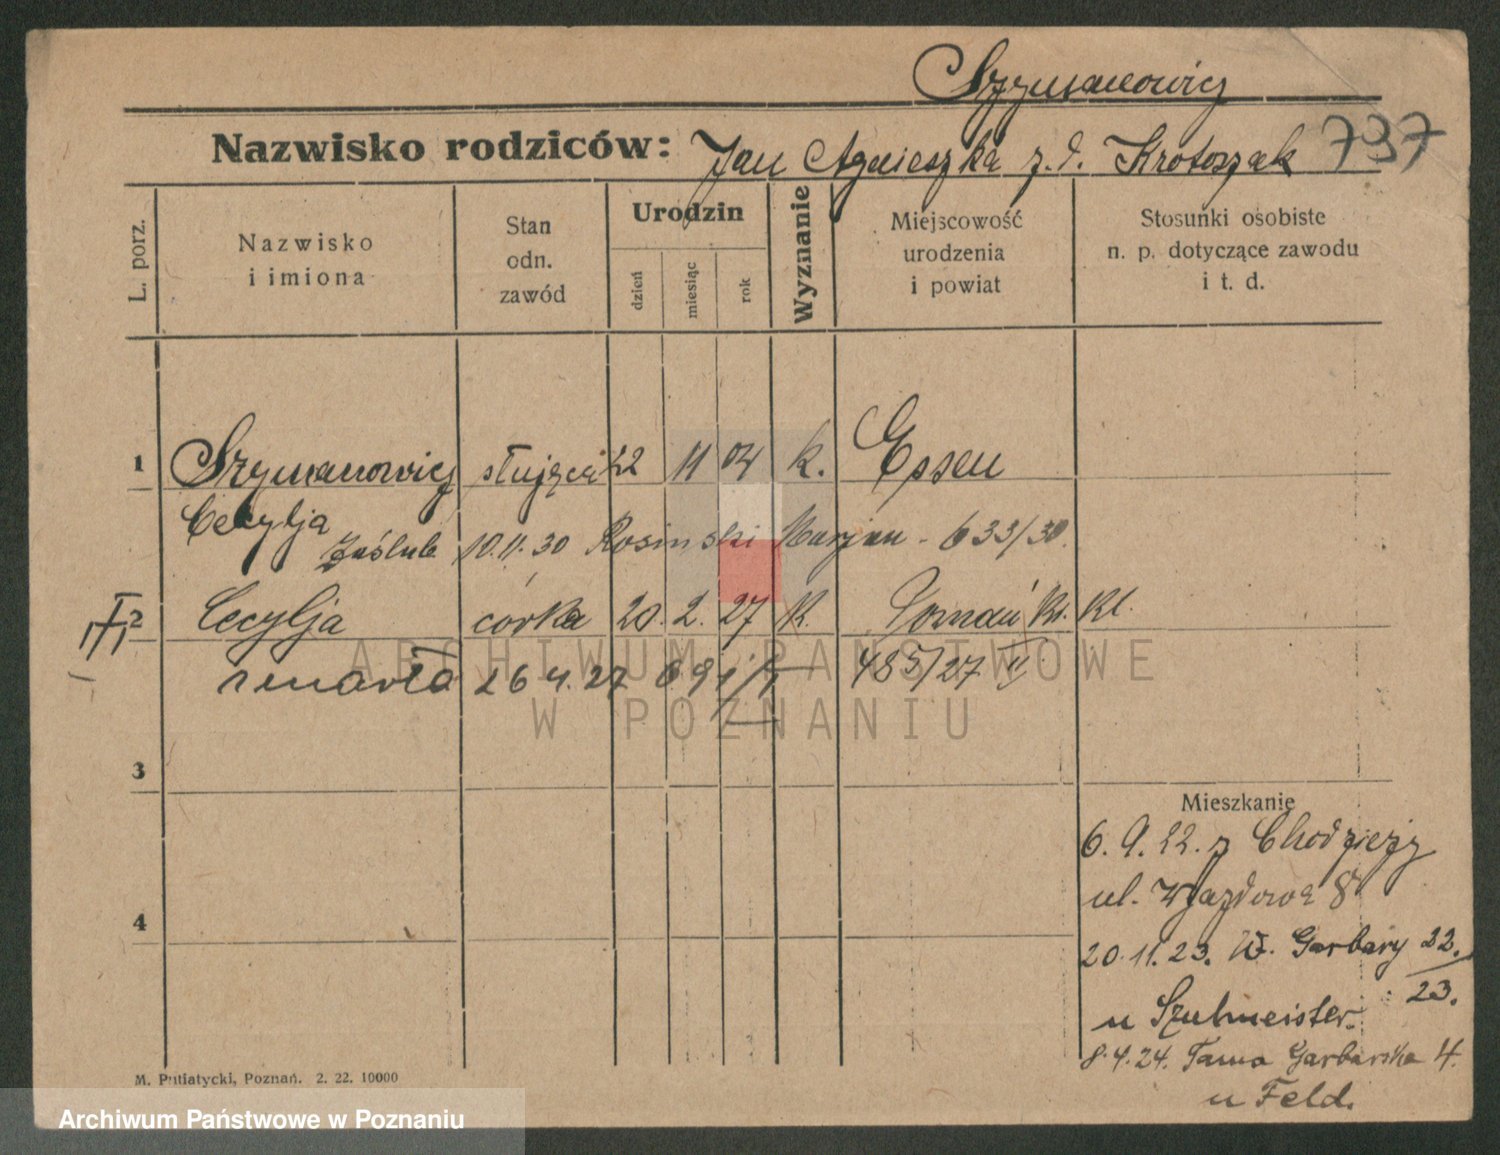 Szymanowicz
Nazwisko rodziców: Jan Agnieszka z. d. Krotoszak 737
L. porz.
Nazwisko i imiona
Stan odn. zawód
Urodzin
dzień
miesiąc
rok
Wyznanie
Miejscowość urodzenia i powiat
Stosunki osobiste n. p. dotyczące zawodu i t. d.
1 Szymanowicz służąca 22 11 04 k. Essen
Cecylja
Zaślub 10.11.30 Rosinski Marjan - 633/30.
2 Cecylja córka 20. 2. 27 K. Poznań Kr. Kl.
zmarła 26 4. 27 485/27 II
3
4
Mieszkanie
6. 9. 22. z Chodzieży
ul. Wjazdowa 8
20.11.23. W. Garbary 22.
23.
u Szulmeister.
8.4.24. Tama Garbarska 4.
u Feld.
M. Putiatycki, Poznań. 2. 22. 10000
ARCHIWUM PAŃSTWOWE
W POZNANIU
Archiwum Państwowe w Poznaniu